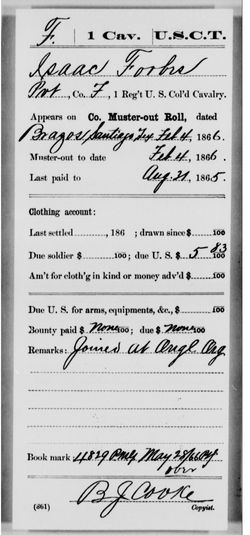 F. | 1 Cav. | U.S.C.T.
Isaac Forbes
Pvt, Co. F, 1 Reg't U. S. Col'd Cavalry.
Appears on Co. Muster-out Roll, dated
Brazos Santiago Tex Feb 4, 1866.
Muster-out to date Feb 4, 1866.
Last paid to Aug. 31, 1865.
Clothing account:
Last settled , 186 ; drawn since $ 100
Due soldier $ 100; due U. S. $ 5 83 100
Am't for cloth'g in kind or money adv'd $ 100
Due U. S. for arms, equipments, &c., $ 100
Bounty paid $ none 100; due $ none 100
Remarks: Joined at
Book mark: 4829 May 28/
B J Cooke
(861) Copyist.